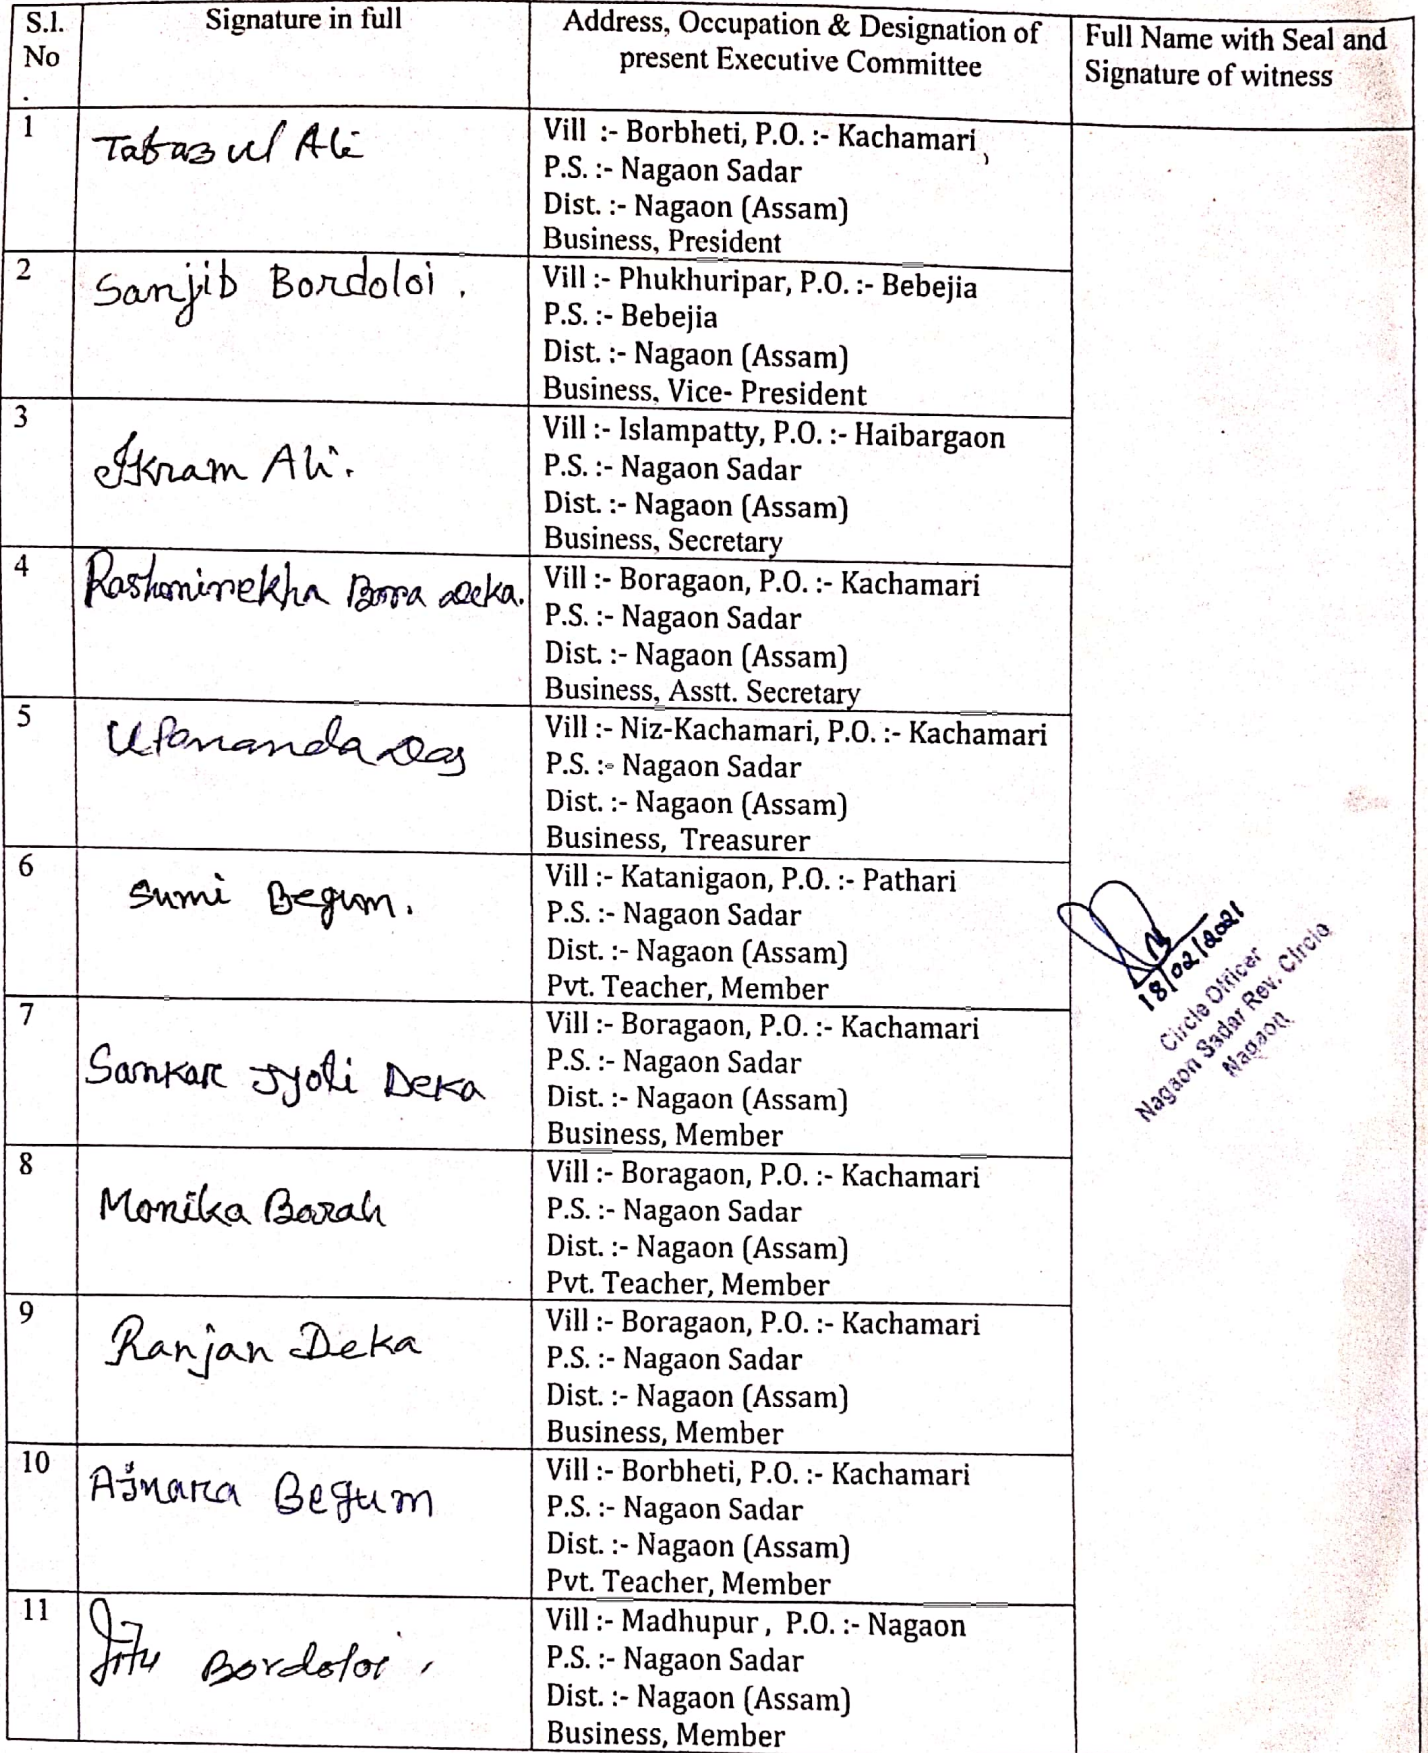 S.l.
No
.
Signature in full
Address, Occupation & Designation of
present Executive Committee
Full Name with Seal and
Signature of witness
1
Tafazul Ali
Vill :- Borbheti, P.O. :- Kachamari,
P.S. :- Nagaon Sadar
Dist. :- Nagaon (Assam)
Business, President
2
Sanjib Bordoloi.
Vill :- Phukhuripar, P.O. :- Bebejia
P.S. :- Bebejia
Dist. :- Nagaon (Assam)
Business, Vice- President
3
Ikram Ali.
Vill :- Islampatty, P.O. :- Haibargaon
P.S. :- Nagaon Sadar
Dist. :- Nagaon (Assam)
Business, Secretary
4
Rashmirekha Bora Deka.
Vill :- Boragaon, P.O. :- Kachamari
P.S. :- Nagaon Sadar
Dist. :- Nagaon (Assam)
Business, Asstt. Secretary
5
Upananda Das
Vill :- Niz-Kachamari, P.O. :- Kachamari
P.S. :- Nagaon Sadar
Dist. :- Nagaon (Assam)
Business, Treasurer
6
Sumi Begum.
Vill :- Katanigaon, P.O. :- Pathari
P.S. :- Nagaon Sadar
Dist. :- Nagaon (Assam)
Pvt. Teacher, Member
18/02/2021
Circle Officer
Nagaon Sadar Rev. Circle
Nagaon
7
Sankar Jyoti Deka
Vill :- Boragaon, P.O. :- Kachamari
P.S. :- Nagaon Sadar
Dist. :- Nagaon (Assam)
Business, Member
8
Monika Borah
Vill :- Boragaon, P.O. :- Kachamari
P.S. :- Nagaon Sadar
Dist. :- Nagaon (Assam)
Pvt. Teacher, Member
9
Ranjan Deka
Vill :- Boragaon, P.O. :- Kachamari
P.S. :- Nagaon Sadar
Dist. :- Nagaon (Assam)
Business, Member
10
Ajnara Begum
Vill :- Borbheti, P.O. :- Kachamari
P.S. :- Nagaon Sadar
Dist. :- Nagaon (Assam)
Pvt. Teacher, Member
11
Jitu Bordoloi.
Vill :- Madhupur, P.O. :- Nagaon
P.S. :- Nagaon Sadar
Dist. :- Nagaon (Assam)
Business, Member